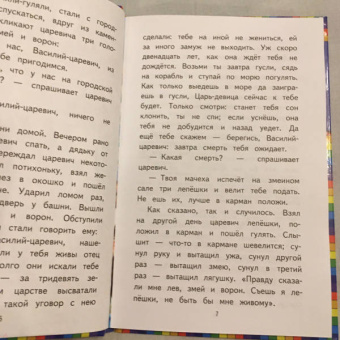 -гуляли, стали с горо-
спускаться, вдруг из камен-
кликают царевича три голо-
змей и ворон:
нас, Василий-царевич,
бе пригодимся.
что у нас на городской
? — спрашивает царевич
силий-царевич, ничего не
ни домой. Вечером рано
ревич спать, а дядьку от
ереждал царевич некото-
потихоньку, взял же-
в окошко и пошёл
не. Ударил ломом раз,
дверь у башни. Вышли
и ворон. Обступили
стали говорить ему:
силий-царевич, наше-
или у тебя живы отец
олго они искали тебе
— за тридевять зе-
царстве высватали
такой уговор с нею
6
сделали: тебе на иной не жениться, ей
ни за кого замуж не выходить. Уж скоро
двенадцать лет, как она ждёт тебя не
дождётся. Возьми ты завтра гусли, сядь
на корабль и ступай по морю погулять.
Как только выедешь в море да заигра-
ешь в гусли, Царь-девица сейчас к тебе
будет. Только смотри: станет тебя сон
клонить, ты не спи; если уснёшь, она
тебя не добудится и назад уедет. Да
ещё тебе скажем — берегись, Василий-
царевич: завтра смерть тебя ожидает.
— Какая смерть? — спрашивает
царевич.
— Твоя мачеха испечёт на змеином
сале три лепёшки и велит тебе подать.
Не ешь их, лучше в карман положи.
Как сказано, так и случилось. Взял
на другой день царевич лепёшки,
положил в карман и пошёл гулять. Слы-
шит — что-то в кармане шевелится; су-
нул руку и вытащил ужа, сунул другой
раз — вытащил змею, сунул в третий
раз — вытащил лягушку. «Правду сказа-
ли мне лев, змей и ворон. Съешь я ле-
пёшки, не быть бы мне живому».
7